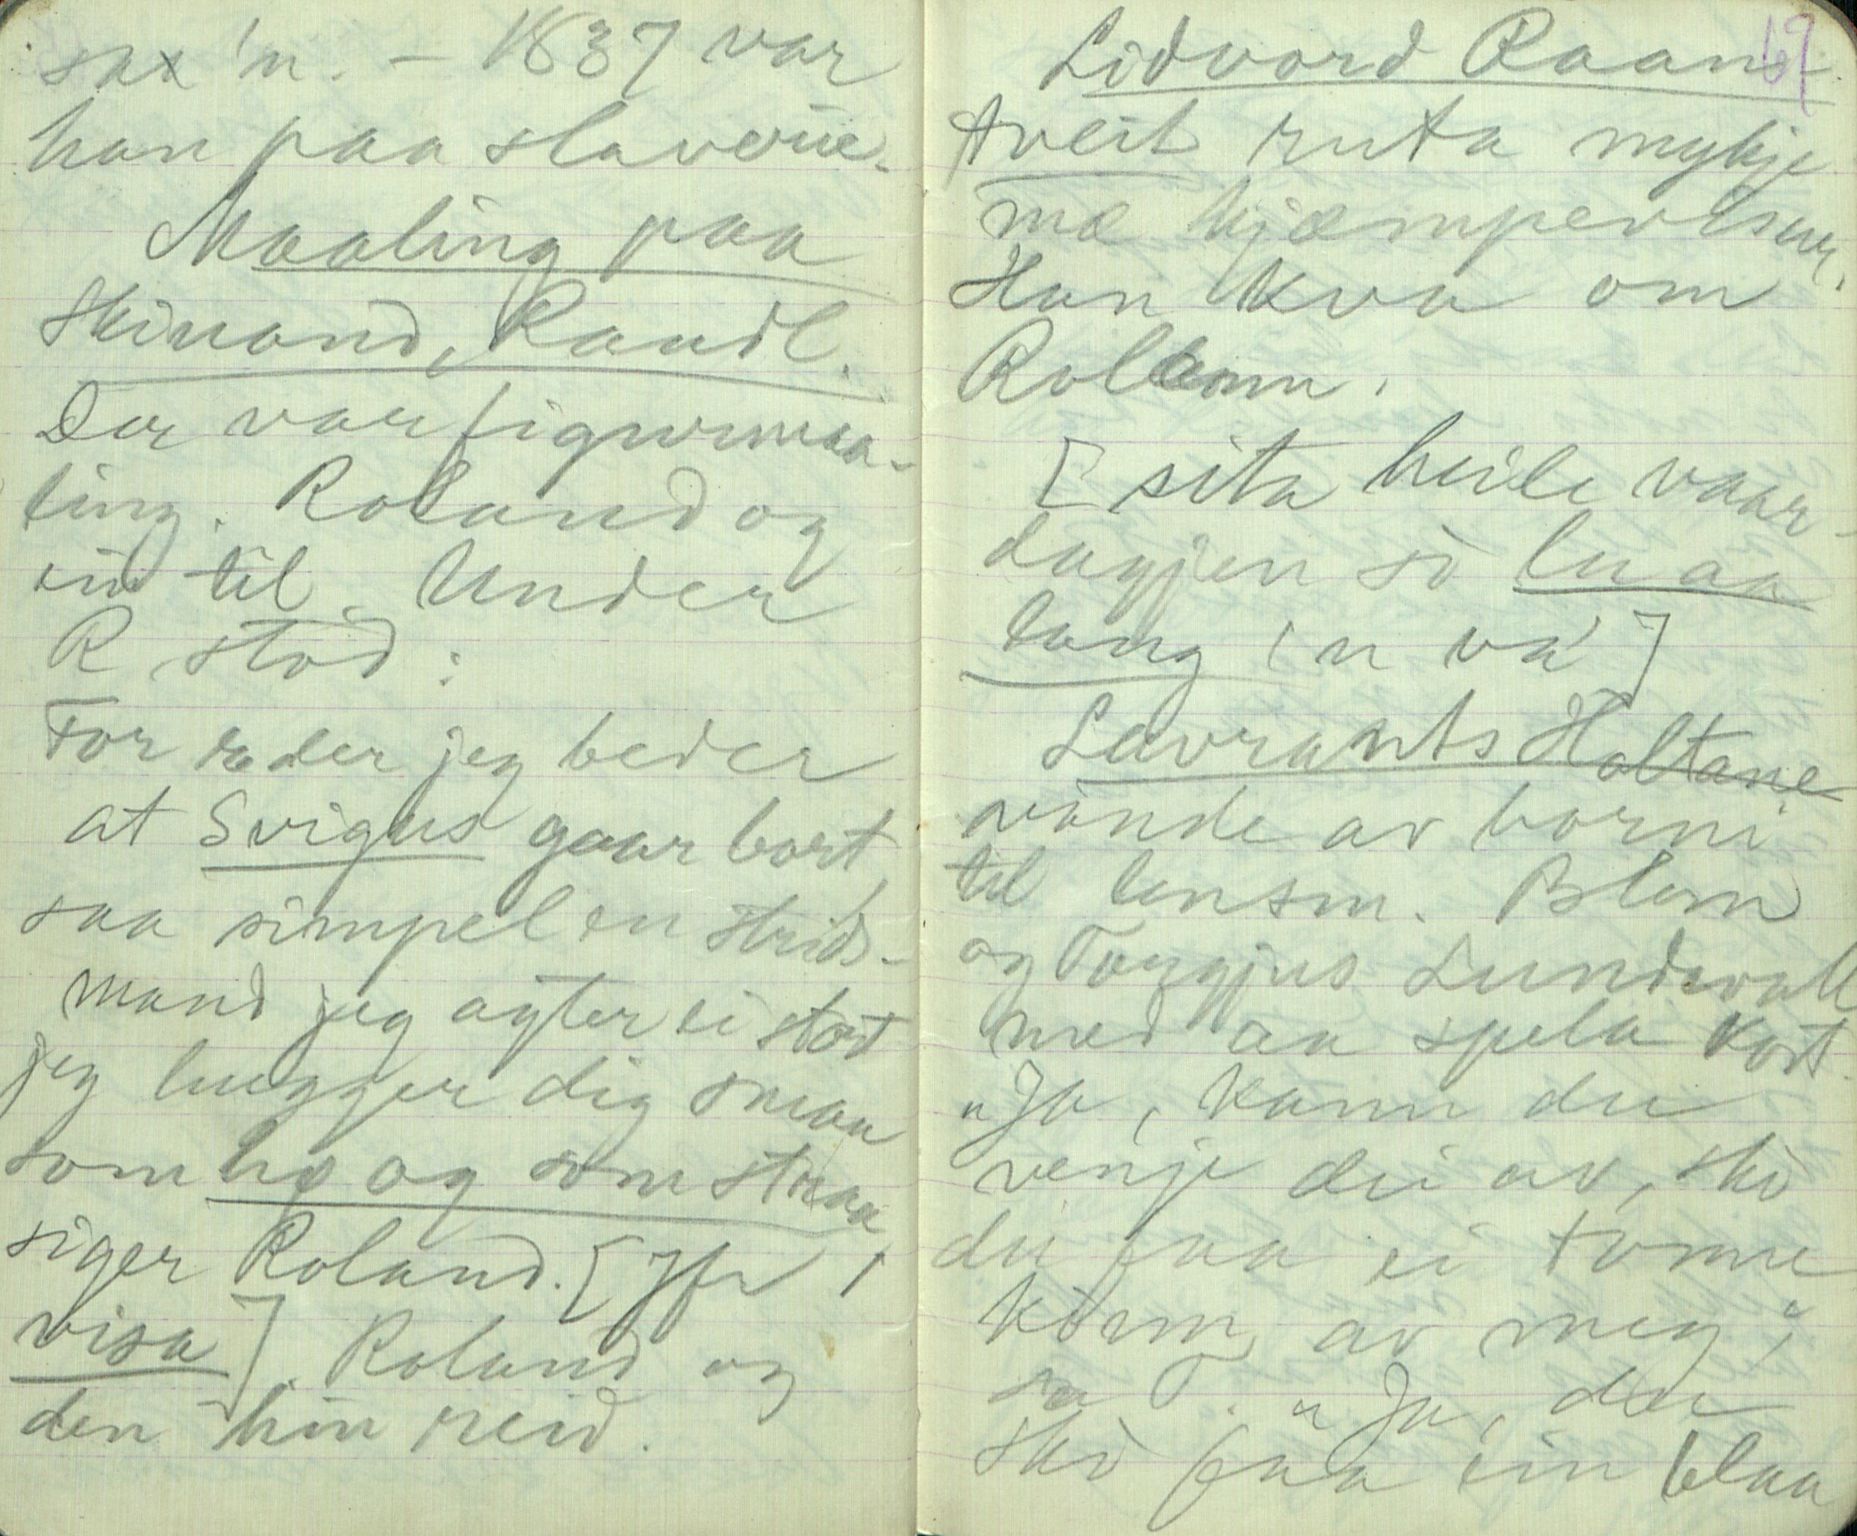 sax'n. – 1837 var
han paa slaverie.
Maaling paa
Skinand, Raudl.
Der var figurmaa-
ling. Roland og
ein til. Under
R stod:
For æder jeg beder
at Svigus gaar bort
saa simpel en strids-
mand jeg agter ei stort
jeg hugger dig smaa
som hø og som straa
siger Roland. [Jfr
visa]. Roland og
den hin reid.
69
Lidvord Raam-
tveit ruta mykje
mæ kjæmpevisur.
Han kva om
Rollann.
[sita heile vaar-
dagjen so lu aa
lang 'n va']
Lavrants Holtane
vande av borni
til lensm. Blom
og Torgjus Lundevall
med aa spela kort.
"Ja, kann du
venje dei av, sko
du faa ei tonne
konn av meg",
sa T. "Ja, du
sko faa ein blaa